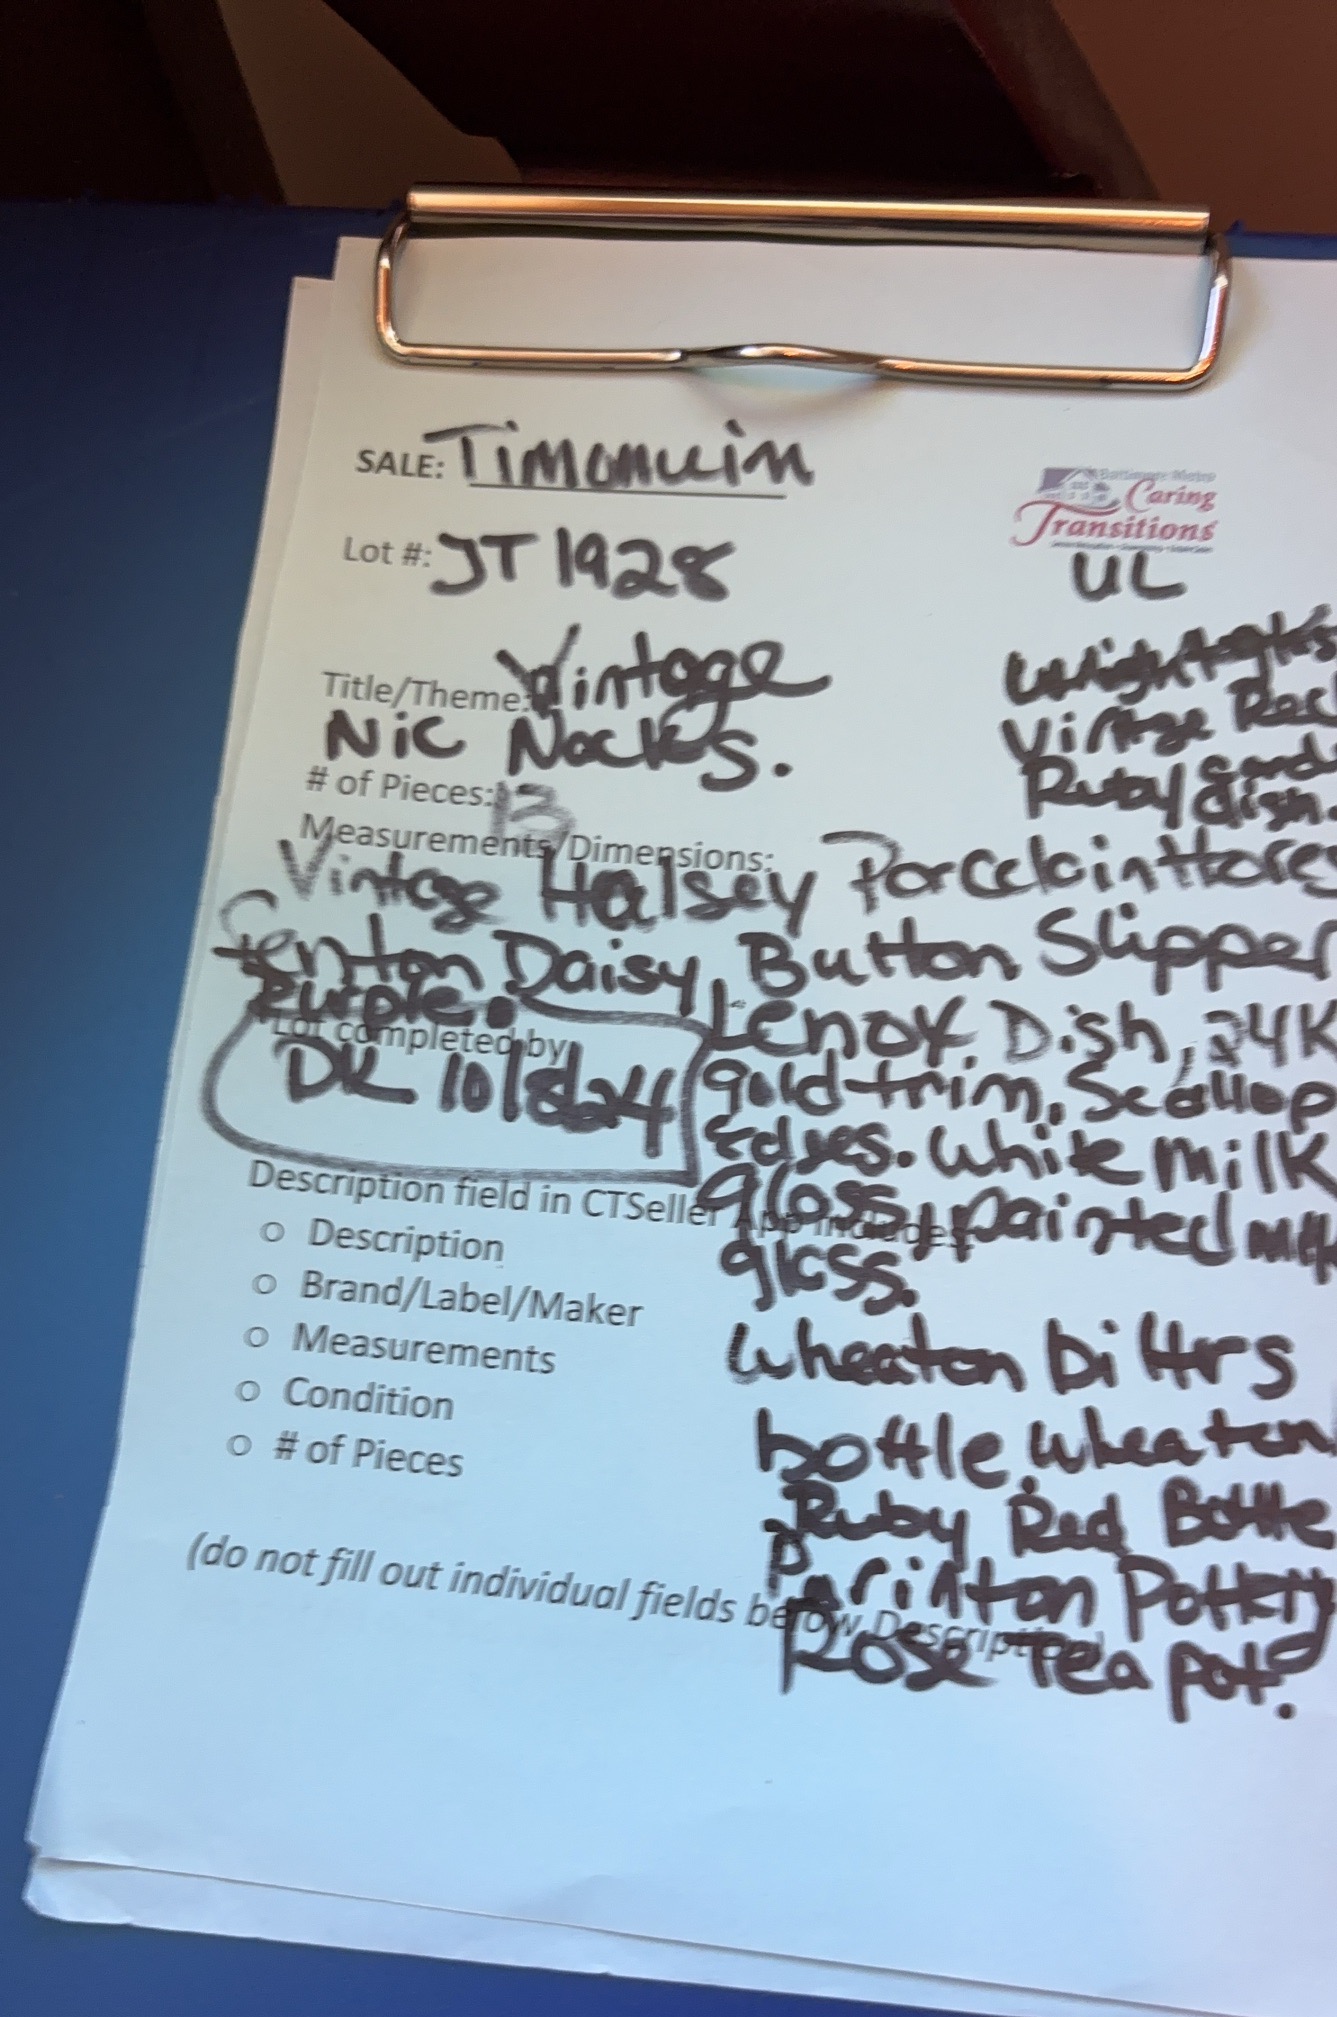 SALE: Timonium
Baltimore Metro
Caring
Transitions
Lot #: JT 1928
UL
Title/Theme: Vintage
Nic Nacks.
# of Pieces: 13
Vintage
Ruby
dish.
Measurements/Dimensions:
Vintage Halsey Porcelain
Fenton Daisy, Button Slipper
Purple.
Lot completed by
DK 10/8/24
Lenox Dish, 24K
gold trim, Scallop
edges. White Milk
glass, painted milk
glass.
Description field in CTSeller App includes:
o Description
o Brand/Label/Maker
o Measurements
o Condition
o # of Pieces
Wheaton Bitters
bottle, Wheaton
Ruby Red Bottle
Purinton Pottery
Rose Tea pot.
(do not fill out individual fields below Description)